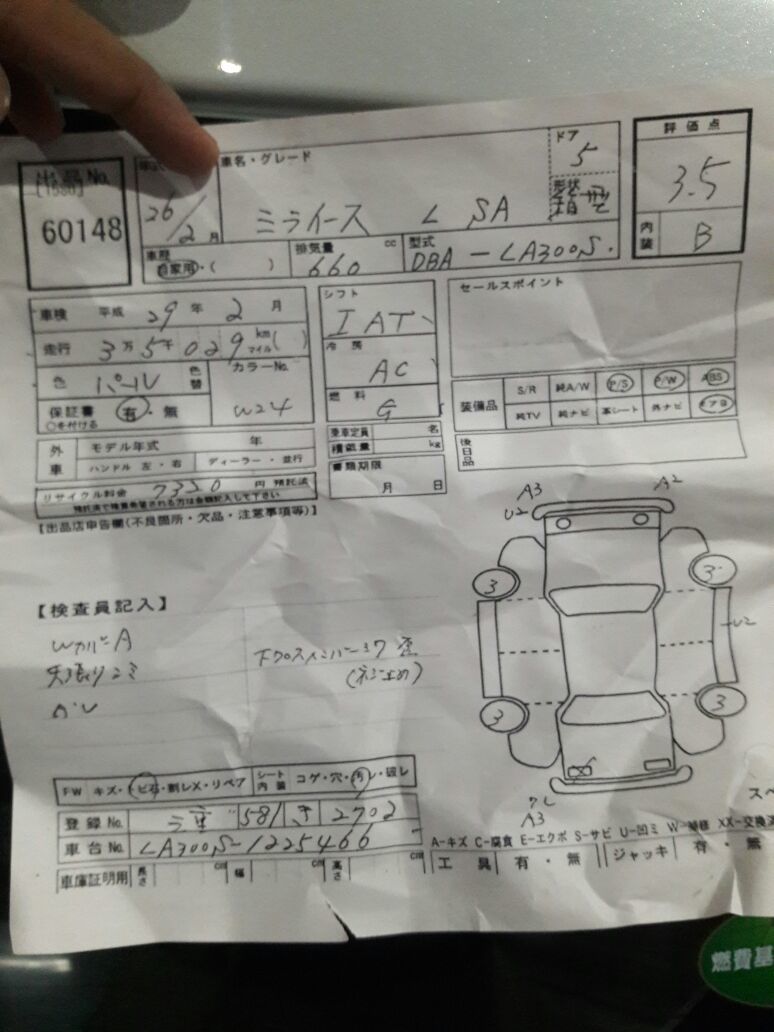 出品No.
[1580]
60148
26/2月
車名・グレード
ミライース L SA
ドア
5
形状
評価点
3.5
内装 B
車歴
自家用・( )
排気量 cc
660
型式
DBA - LA300S.
車検 平成 29年 2月
走行 3万5千029 km マイル( )
色 パール 色替
カラーNo.
W24
保証書 有・無
○を付ける
シフト
IAT
冷房
AC
燃料
G
セールスポイント
装備品 S/R 純A/W P/S P/W ABS
純TV 純ナビ 革シート 外ナビ エアB
後日品
外車 モデル年式 年
ハンドル 左・右 ディーラー・並行
乗車定員 名
積載量 kg
書類期限
月 日
リサイクル料金 7350円 預託済
預託済で積算希望される方は金額記入して下さい
【出品店申告欄(不良箇所・欠品・注意事項等)】
A3 A2
U2
3 3
U2
3 3
A3
【検査員記入】
WカバーA
天張りシミ
下クロスメンバーミク歪
(ネジ止め)
FW キズ・トビ石・割レX・リペア シート内装 コゲ・穴・汚レ・破レ
登録No. 三重 581 き 2702
車台No. LA300S-1225466
車庫証明用 長さ cm 幅 cm 高さ cm
A-キズ C-腐食 E-エクボ S-サビ U-凹ミ W-補修 XX-交換済
工具 有・無 ジャッキ 有・無
スペ
燃費基